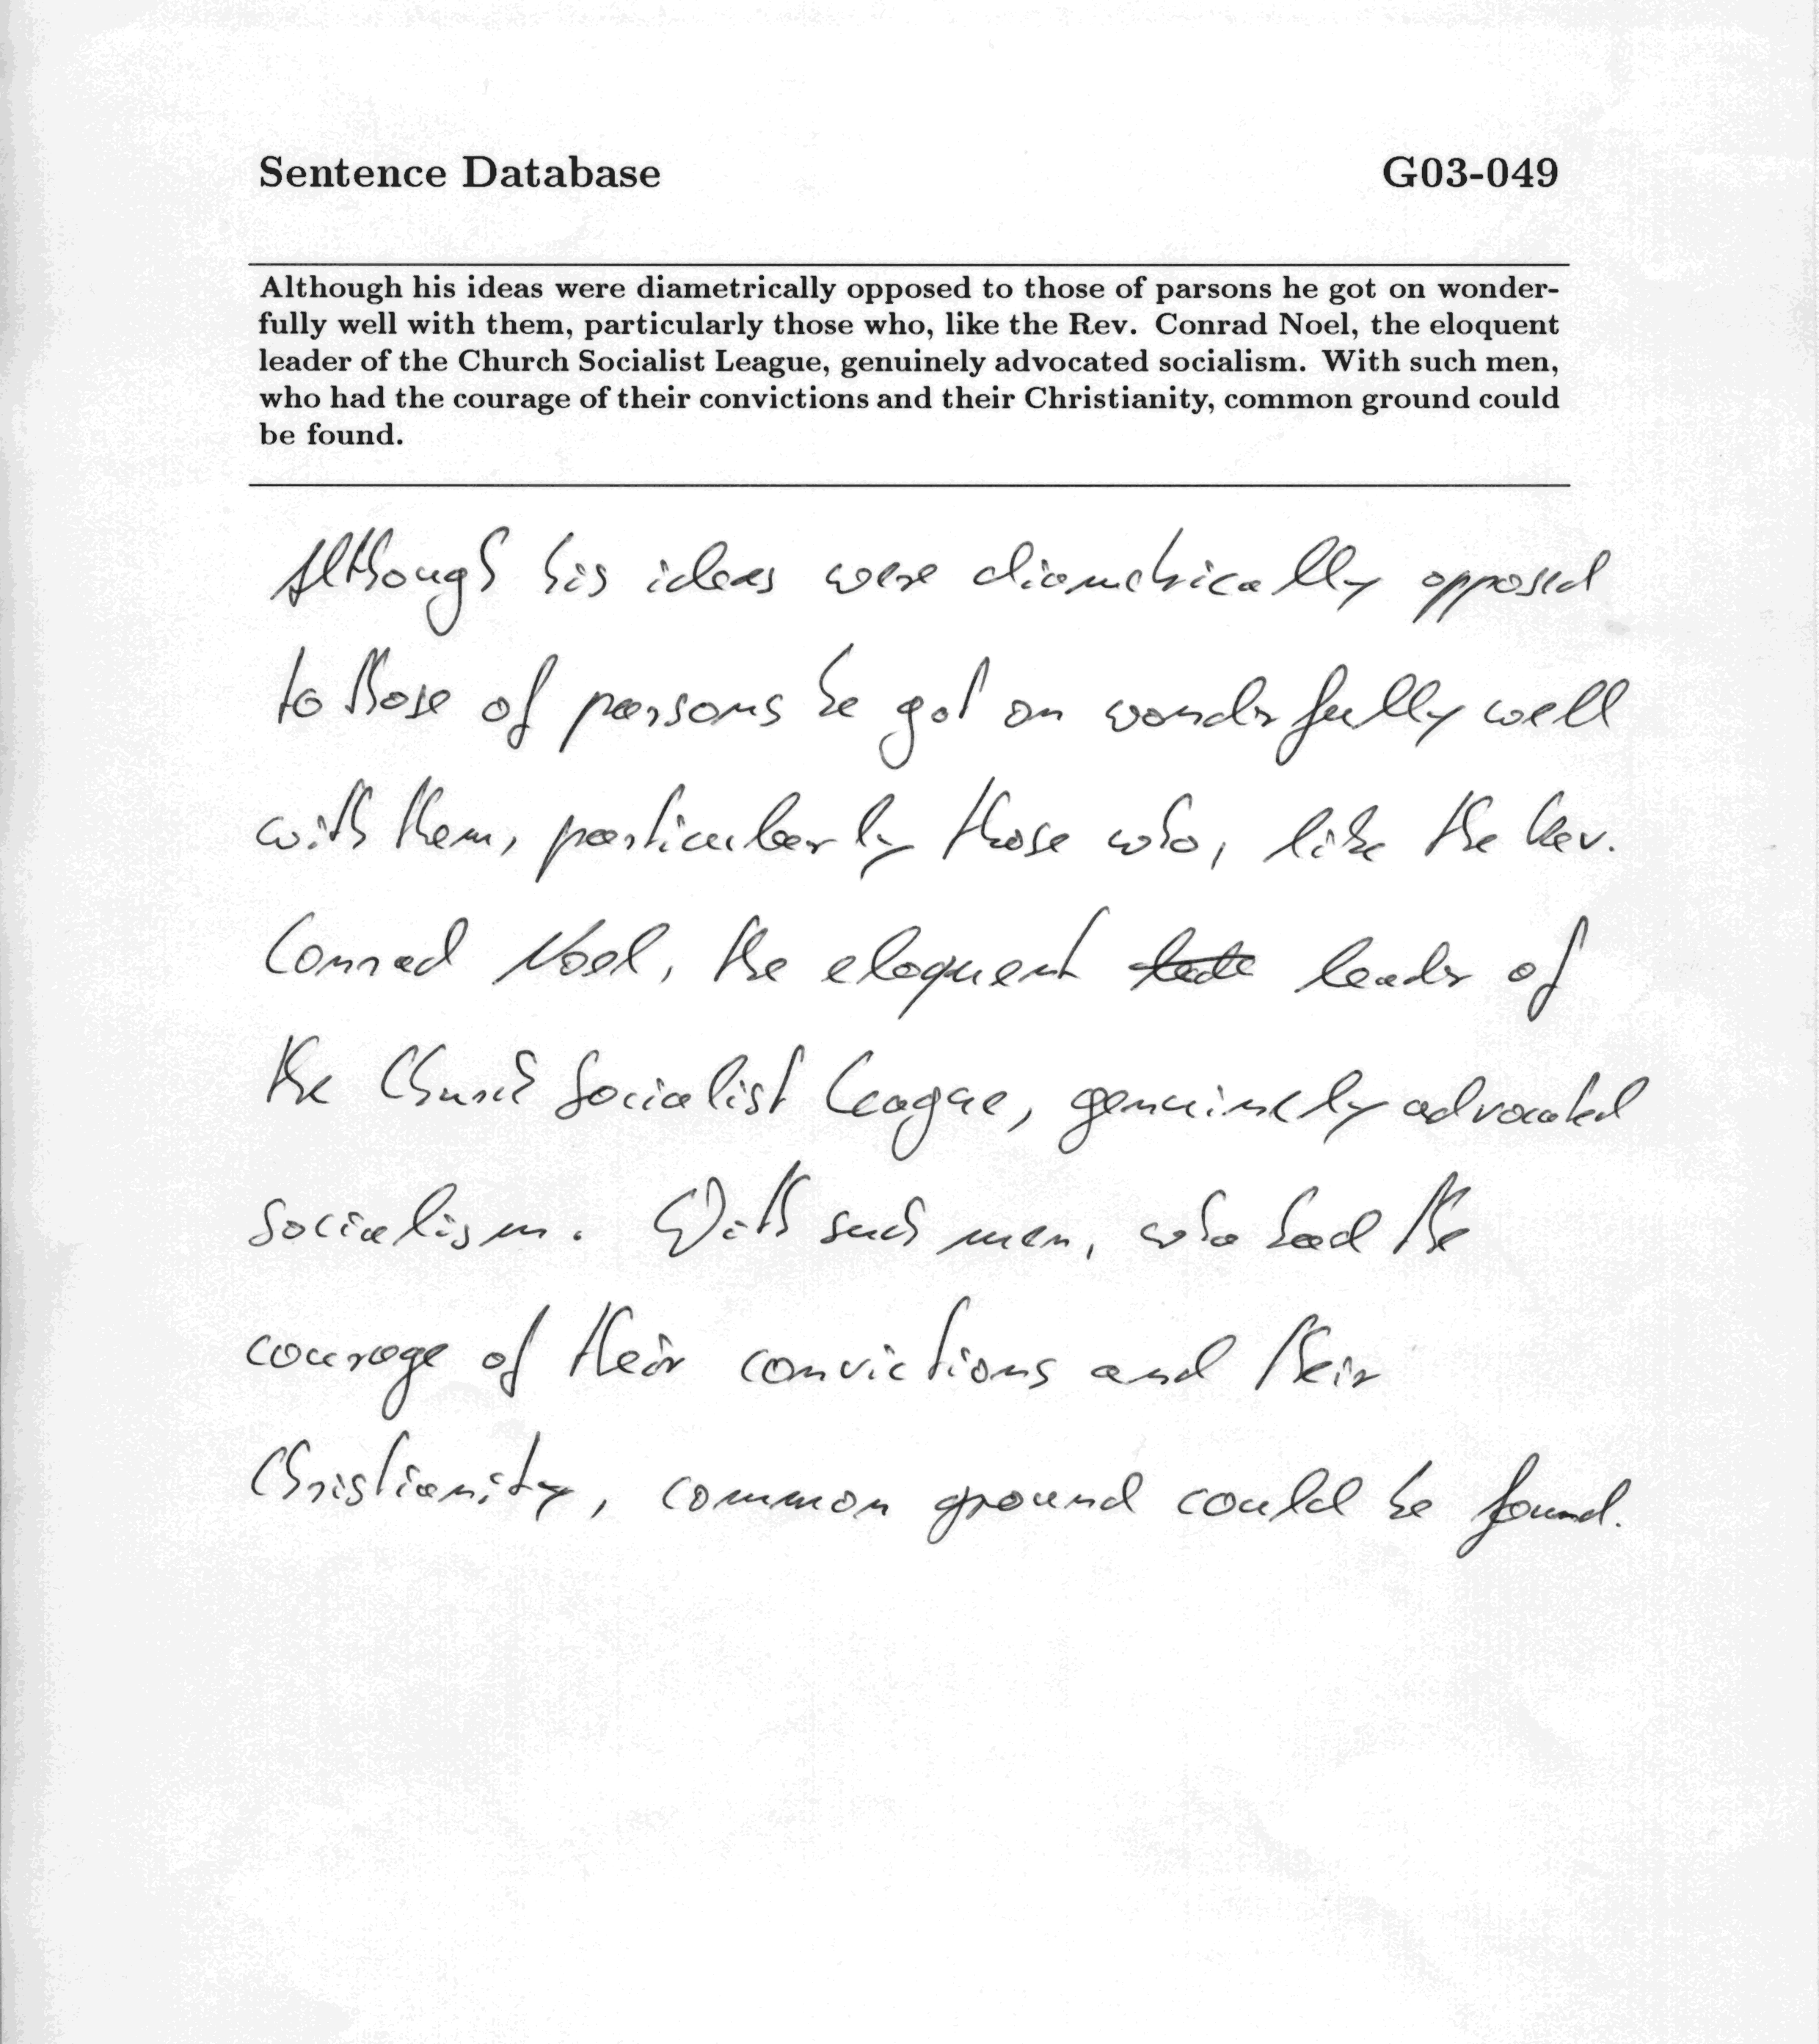 Sentence Database G03-049
Although his ideas were diametrically opposed to those of parsons he got on wonder-
fully well with them, particularly those who, like the Rev. Conrad Noel, the eloquent
leader of the Church Socialist League, genuinely advocated socialism. With such men,
who had the courage of their convictions and their Christianity, common ground could
be found.
Although his ideas were diametrically opposed
to those of parsons he got on wonderfully well
with them, particularly those who, like the Rev.
Conrad Noel, the eloquent leader of
the Church Socialist League, genuinely advocated
socialism. With such men, who had the
courage of their convictions and their
Christianity, common ground could be found.